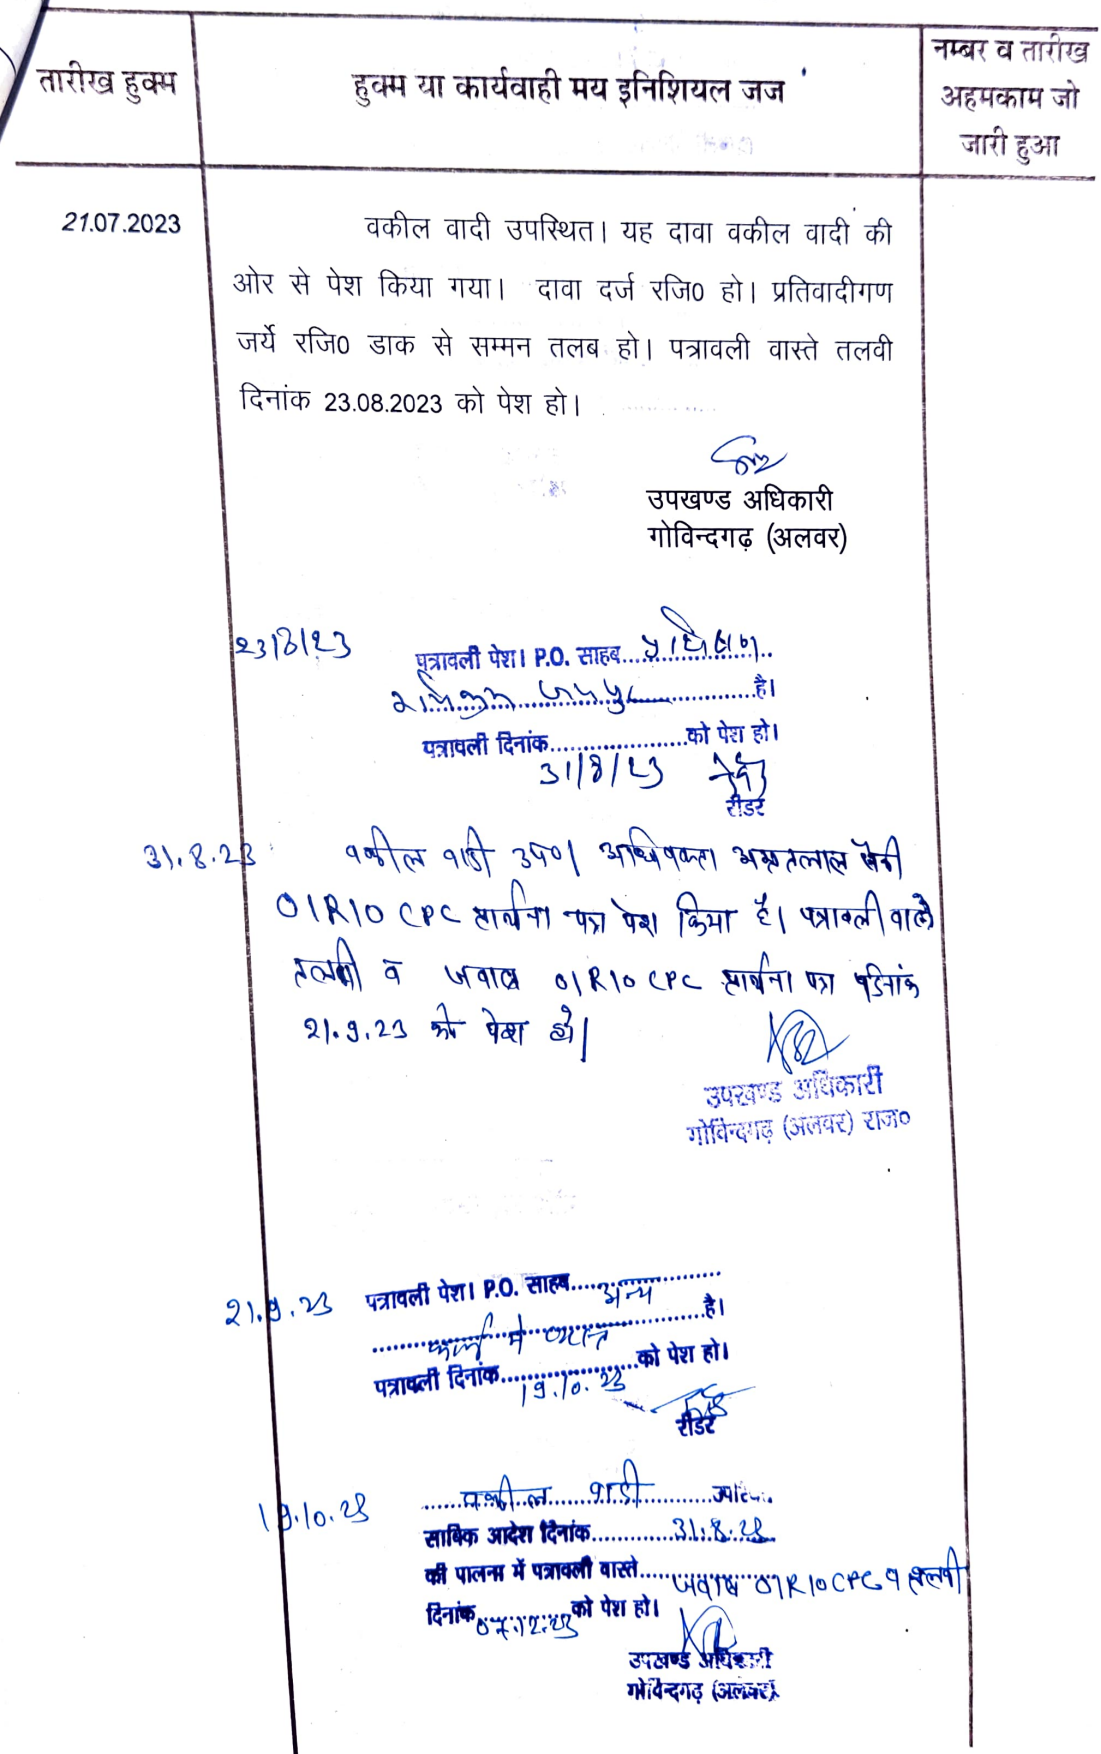 तारीख हुक्म
हुक्म या कार्यवाही मय इनिशियल जज
नम्बर व तारीख
अहमकाम जो
जारी हुआ
21.07.2023
वकील वादी उपस्थित। यह दावा वकील वादी की
ओर से पेश किया गया। दावा दर्ज रजि0 हो। प्रतिवादीगण
जर्ये रजि0 डाक से सम्मन तलब हो। पत्रावली वास्ते तलवी
दिनांक 23.08.2023 को पेश हो।
उपखण्ड अधिकारी
गोविन्दगढ़ (अलवर)
23/8/23
पत्रावली पेश। P.O. साहब
है।
पत्रावली दिनांक 31/8/23 को पेश हो।
रीडर
31.8.23
वकील वादी उप0। अधिवक्ता अमृतलाल सैनी
O1R10 CPC प्रार्थना पत्र पेश किया है। पत्रावली वास्ते
तलवी व जवाब O1R10 CPC प्रार्थना पत्र दिनांक
21.9.23 को पेश हो।
उपखण्ड अधिकारी
गोविन्दगढ़ (अलवर) राज०
21.9.23
पत्रावली पेश। P.O. साहब अन्य
कार्य में व्यस्त है।
पत्रावली दिनांक 19.10.23 को पेश हो।
रीडर
19.10.23
वकील वादी उपस्थि.
साबिक आदेश दिनांक 31.8.23
की पालना में पत्रावली वास्ते जवाब O1R10 CPC व तलवी
दिनांक 07.12.23 को पेश हो।
उपखण्ड अधिकारी
गोविन्दगढ़ (अलवर)